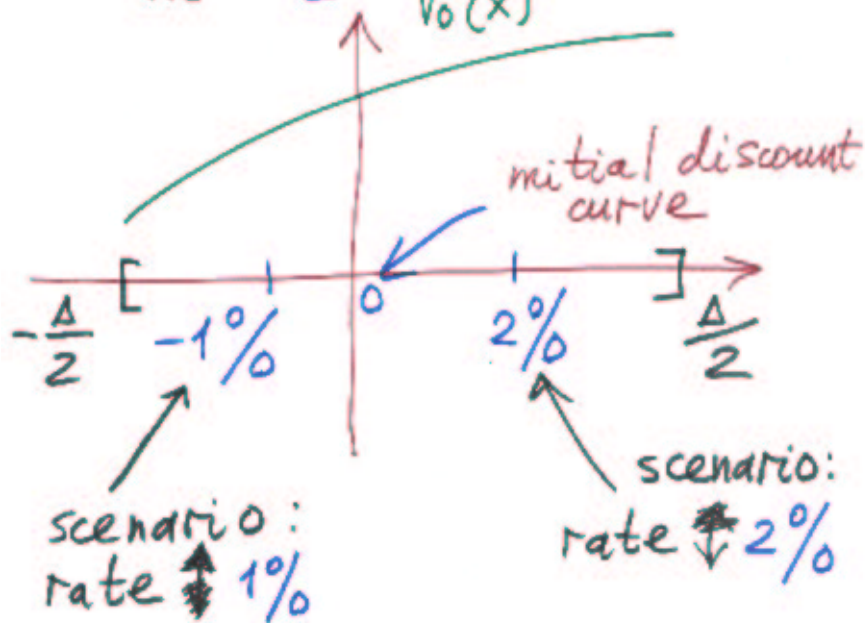 V₀(x)
mitial discount
curve
-Δ/2 -1% 0 2% Δ/2
scenario:
rate ↑ 1%
scenario:
rate ↓ 2%